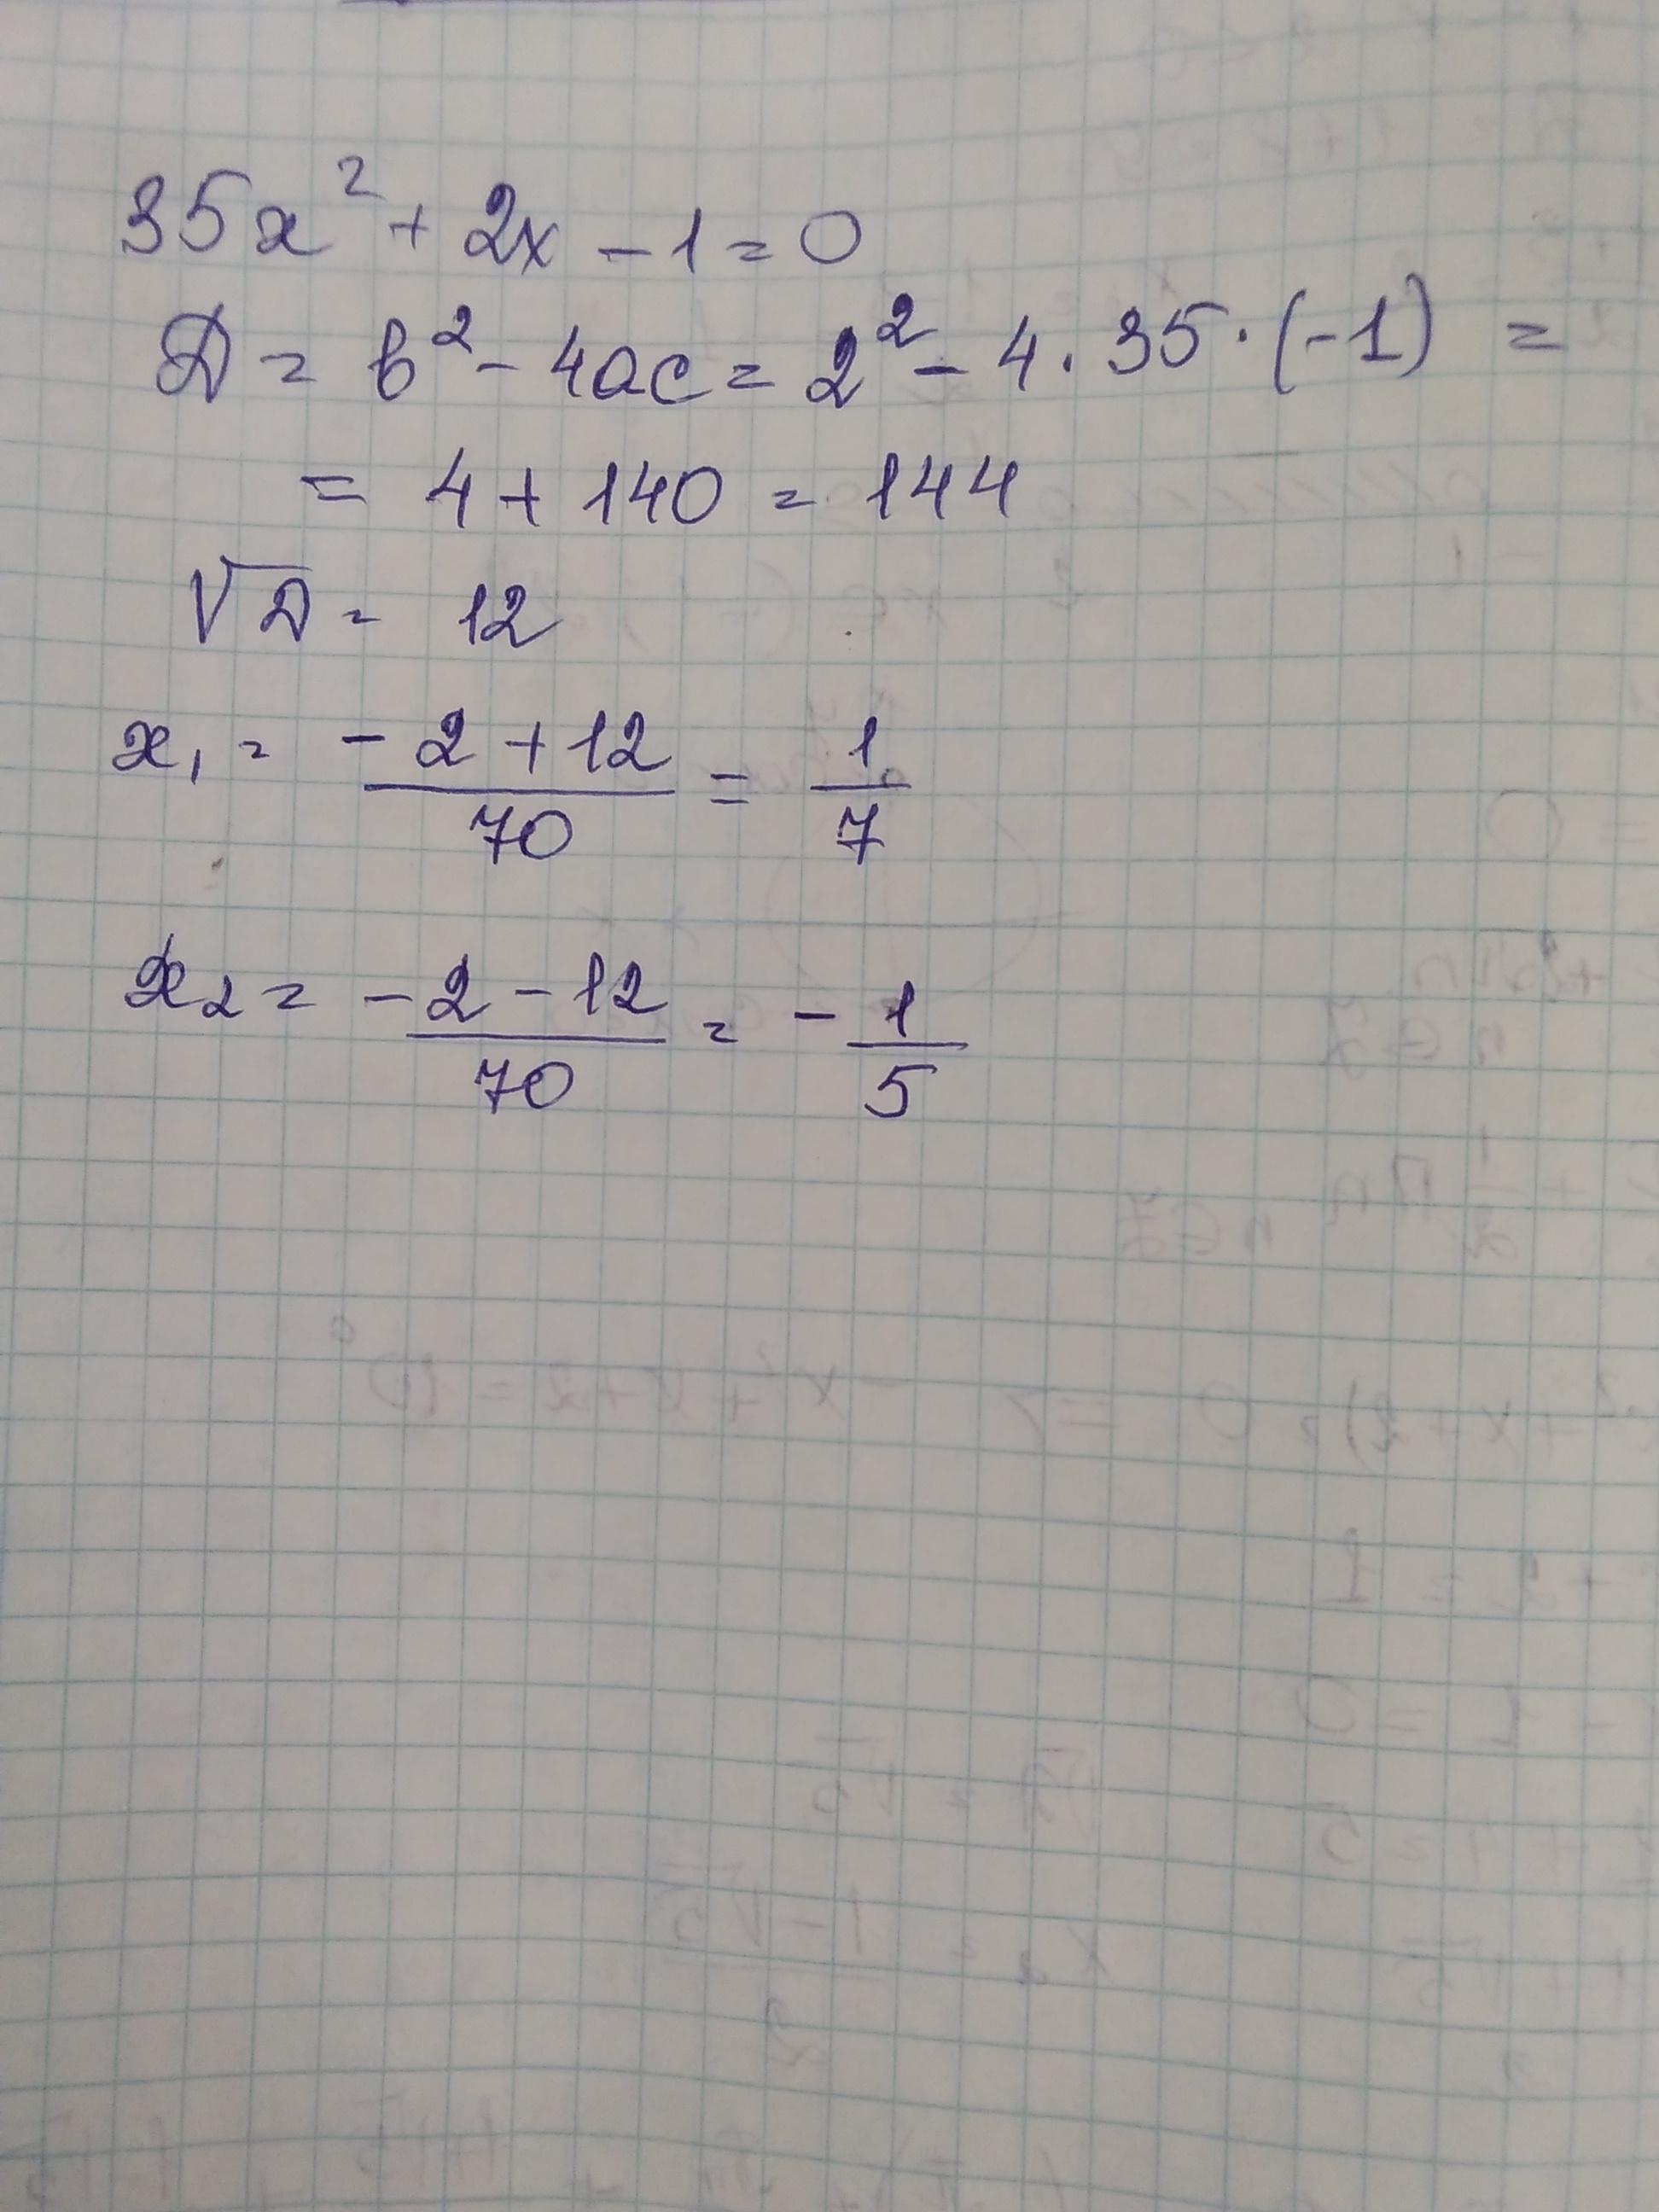 35x² + 2x - 1 = 0
D = b² - 4ac = 2² - 4 · 35 · (-1) =
= 4 + 140 = 144
√D = 12
x₁ = (-2 + 12)/70 = 1/7
x₂ = (-2 - 12)/70 = -1/5